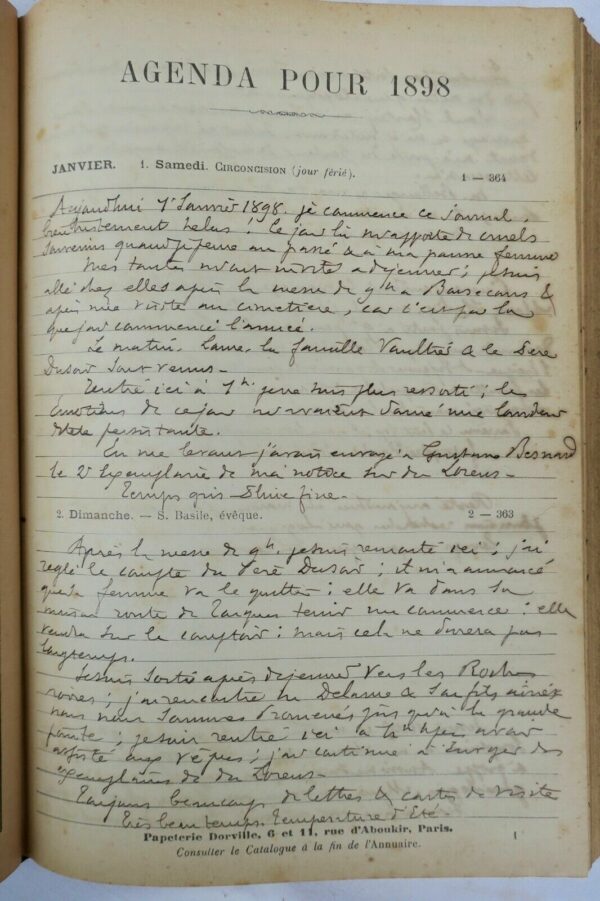 AGENDA POUR 1898
JANVIER. 1. Samedi. CIRCONCISION (jour férié). 1 — 364
Aujourdhui 1er Janvier 1898. je commence ce Journal,
bien tristement helas! Ce jour là m'apporte de cruels
Souvenirs quand je pense au passé & à ma pauvre femme
Mes tantes m'ont invité a dejeuner; je suis
allé chez elles après la messe de 9h a &
après une visite au cimetière, car c'est par là
que j'ai commencé l'année.
Le matin, la famille Vaultré & le Père
Dusoir sont venus -
Rentré ici à 1h. je ne suis plus ressorti; les
Emotions de ce jour m'avaient donné une lourdeur
de tête persistante.
En me levant j'avais envoyé a Gustave Besnard
le 2e Exemplaire de ma notice sur du Lorens -
Temps gris. Pluie fine. -
2. Dimanche. — S. Basile, évêque. 2 — 363
Après la messe de 9h. je suis remonté ici; j'ai
reglé le compte du Père Dusoir; il m'a annoncé
que sa femme va le quitter: elle va dans la
maison route de tenir un commerce: elle
vendra sur le comptoir: mais cela ne durera pas
longtemps.
Je suis sorti après dejeuner vers les Roches
noires; j'ai rencontré Mr Delarme & son fils
nous nous sommes promenés jusqu'à la grande
pointe; je suis rentré ici a 4h après avoir
assisté aux vêpres; j'ai continué a envoyer des
exemplaires de du Lorens -
Toujours beaucoup de lettres & cartes de visite
Très beau temps. Temperature d'Eté.
Papeterie Dorville, 6 et 11, rue d'Aboukir, Paris. 1
Consulter le Catalogue à la fin de l'Annuaire.